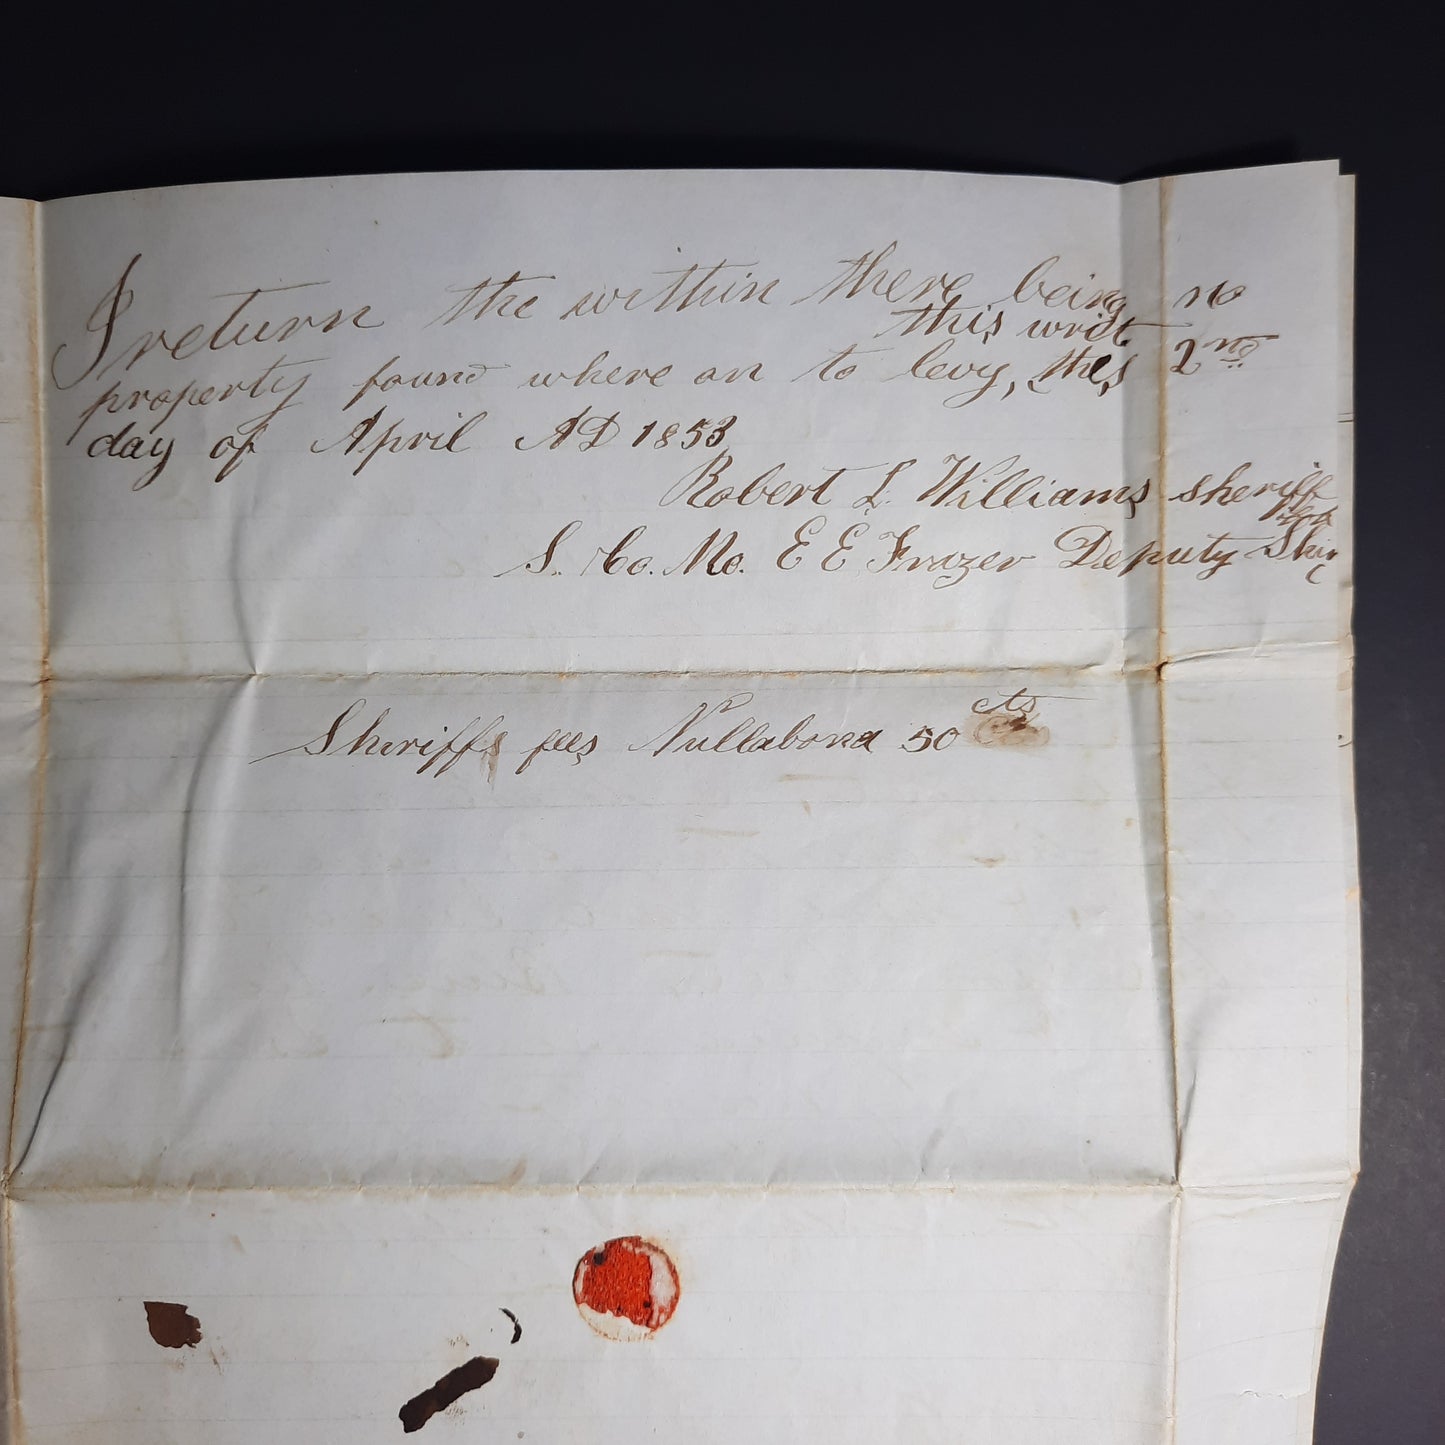 I return the within there being no
this writ.
property found where on to levy, this 2nd
day of April AD 1853
Robert L. Williams sheriff
S. Co. Mo. E E Frazer Deputy
cts
Sheriffs fees Nullabona 50